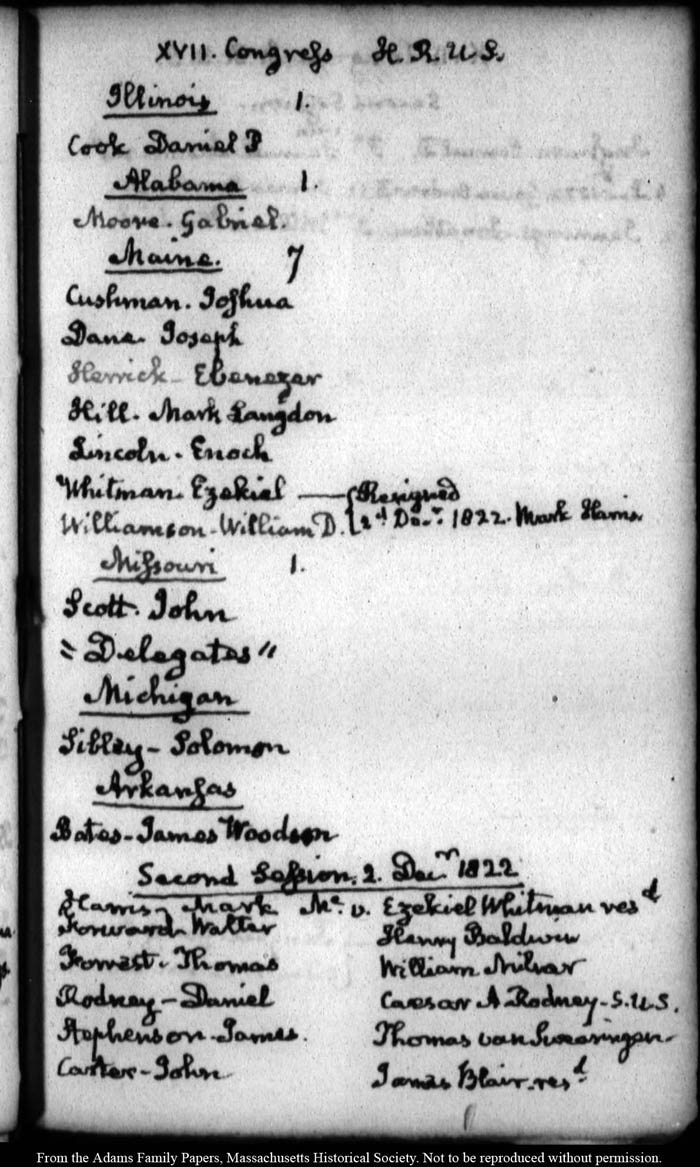 XVII. Congress H. R. U. S.
Illinois 1.
Cook Daniel P
Alabama 1.
Moore. Gabriel.
Maine. 7
Cushman. Joshua
Dane. Joseph
Herrick - Ebenezer
Hill. Mark Langdon
Lincoln. Enoch
Whitman. Ezekiel — { Resigned
Williamson - William D. { 2d Decr. 1822. Mark Harris
Missouri 1.
Scott. John
"Delegates"
Michigan
Sibley - Solomon
Arkansas
Bates - James Woodson
Second Session. 2. Decr 1822
Harris - Mark Me. v. Ezekiel Whitman resd
Forward - Walter Henry Baldwin
Forrest. Thomas William Milnar
Rodney - Daniel Caesar A Rodney - S.U.S.
Stephenson - James. Thomas van Swearingen
Carter - John James Blair - resd.
From the Adams Family Papers, Massachusetts Historical Society. Not to be reproduced without permission.